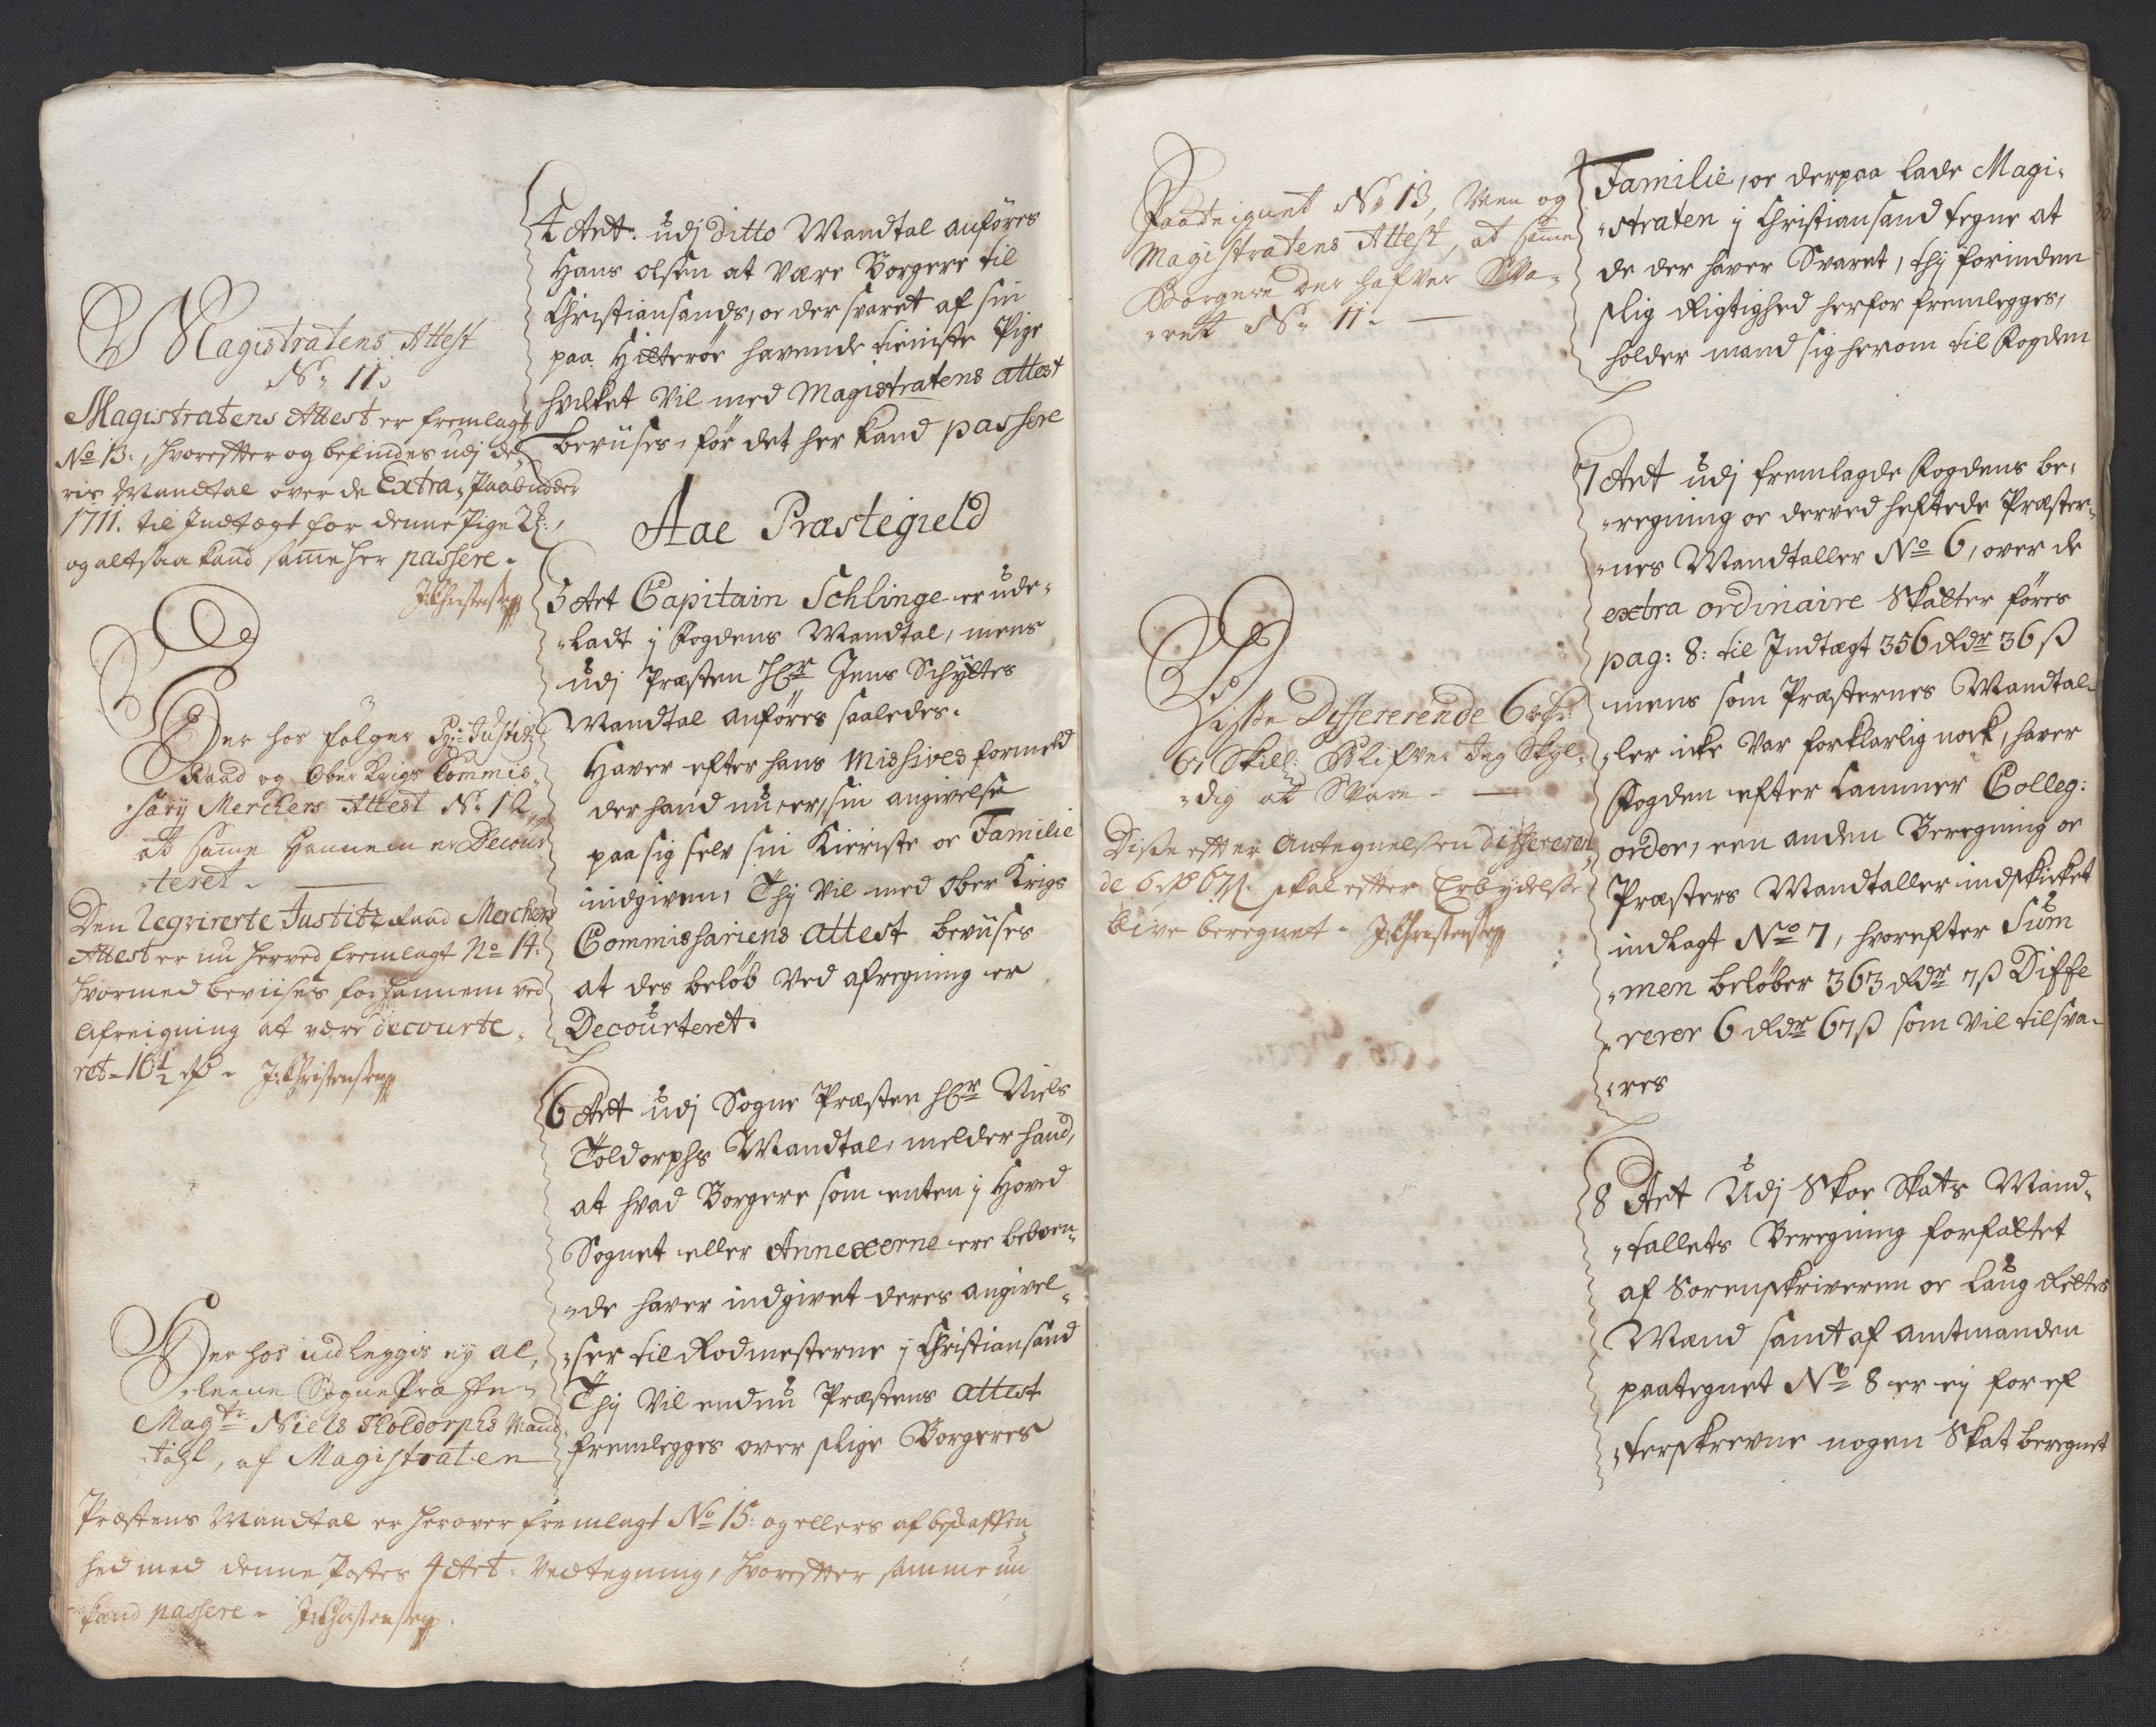 Magistratens Attest
No 11.
Magistratens Attest er fremlagt
No 13:, hvorefter og befindes udj de,,
ris Mandtal over de Extra Paabudder
1711. til Indtægt for denne Pige 2 ß:,
og altsaa kand samme her passere.
J:Christensen
Der hos følger Justitz
Raad og Ober Krigs Commis,,
,,sarij Merckers Attest No 12
at samme hannem er Decour
,,teret.
Den Reqvirerte Justitz Raad Merckers
Attest er nu herved fremlagt No 14:
hvormed beviises for hannem ved
Afreigning at være decourte,,
ret 16½ rd. J:Christensen
Her hos indleggis ey al,,
,,leene Sogne Præsten
Magr Niels Toldorphs Mand,,
tahl, af Magistraten
4 Art. udj Ditto Mandtal anføres
Hans Olsen at være Borgere til
Christiansands, oc der svaret af sin
paa Hitterøe havende tieniste Pige
hvilket vil med Magistratens attest
beviises, før det her kand passere
Aae Præstegield
5 Art Capitain Schlinge er ude,,
,,ladt j Fogdens Mandtal, mens
udj Præsten Hr Jens Schyttes
Mandtal anføres saaledes.
Haver efter hans Missives formeld
der hand nu er, sin angivelse
paa sig selv sin Kieriste oc Familie
indgiven, Thj vil med Ober Krigs
Commissariens attest beviises
at des beløb ved afregning er
Decourteret.
6 Art udj Sogne Præsten Hr Niels
Toldorphs Mandtal, melder hand,
at hvad Borgere som enten j Hoved
Sognet eller Annexerne ere boen,,
,,de haver indgivet deres angivel,,
,,ser til Rodmesterne j Christiansand
Thj vil endnu Præstens attest
fremlegges over slige Borgeres
Præstens Mandtal er herover fremlagt No 15: og ellers af beskaffen,,
hed med denne Postes 4 Art. Vedtegning, hvorefter samme nu
kand passere. J:Christensen.
Paateignet No 13, Men og
Magistratens Attest, at samme
Borgere der hafver Sva,,
,,ret No 11.
Disse Differerende 6 rdr
67 Skill: blifver Jeg Skyl,,
,,dig at Svare
Disse efter Antegnelsen differeren
de 6 rd 67 ß. skal efter Erbydelse
blive beregnet. J:Christensen
Familie, oc derpaa lade Magi,,
,,straten j Christiansand tegne at
de der haver Svaret, thj forinden
slig Rigtighed herfor fremlegges,
holder mand sig herom til Fogden
7 Art udj fremlagde Fogdens be,,
,,regning oc derved heftede Præster,,
,,nes Mandtaller No 6, over de
extra ordinaire Skatter føres
pag: 8: til Indtægt 356 Rdr 36 ß
mens som Præsternes Mandtal,,
,,ler icke var forklarlig nock, haver
Fogden efter Cammer Colleg:
order, een anden Beregning oc
Præsters Mandtaller indskicket
indlagt No 7, hvorefter Sum
,,men beløber 363 Rdr 7 ß Diffe
,,rerer 6 Rdr 67 ß som vil tilsva,,
,,res
8 Art Udj Skoe Skats Mand,,
,,tallets Beregning forfattet
af Sorenskriveren oc Laug Rettes
Mænd samt af Amtmanden
paategnet No 8 er ey for ef
,,terskrevne nogen Skat beregnet